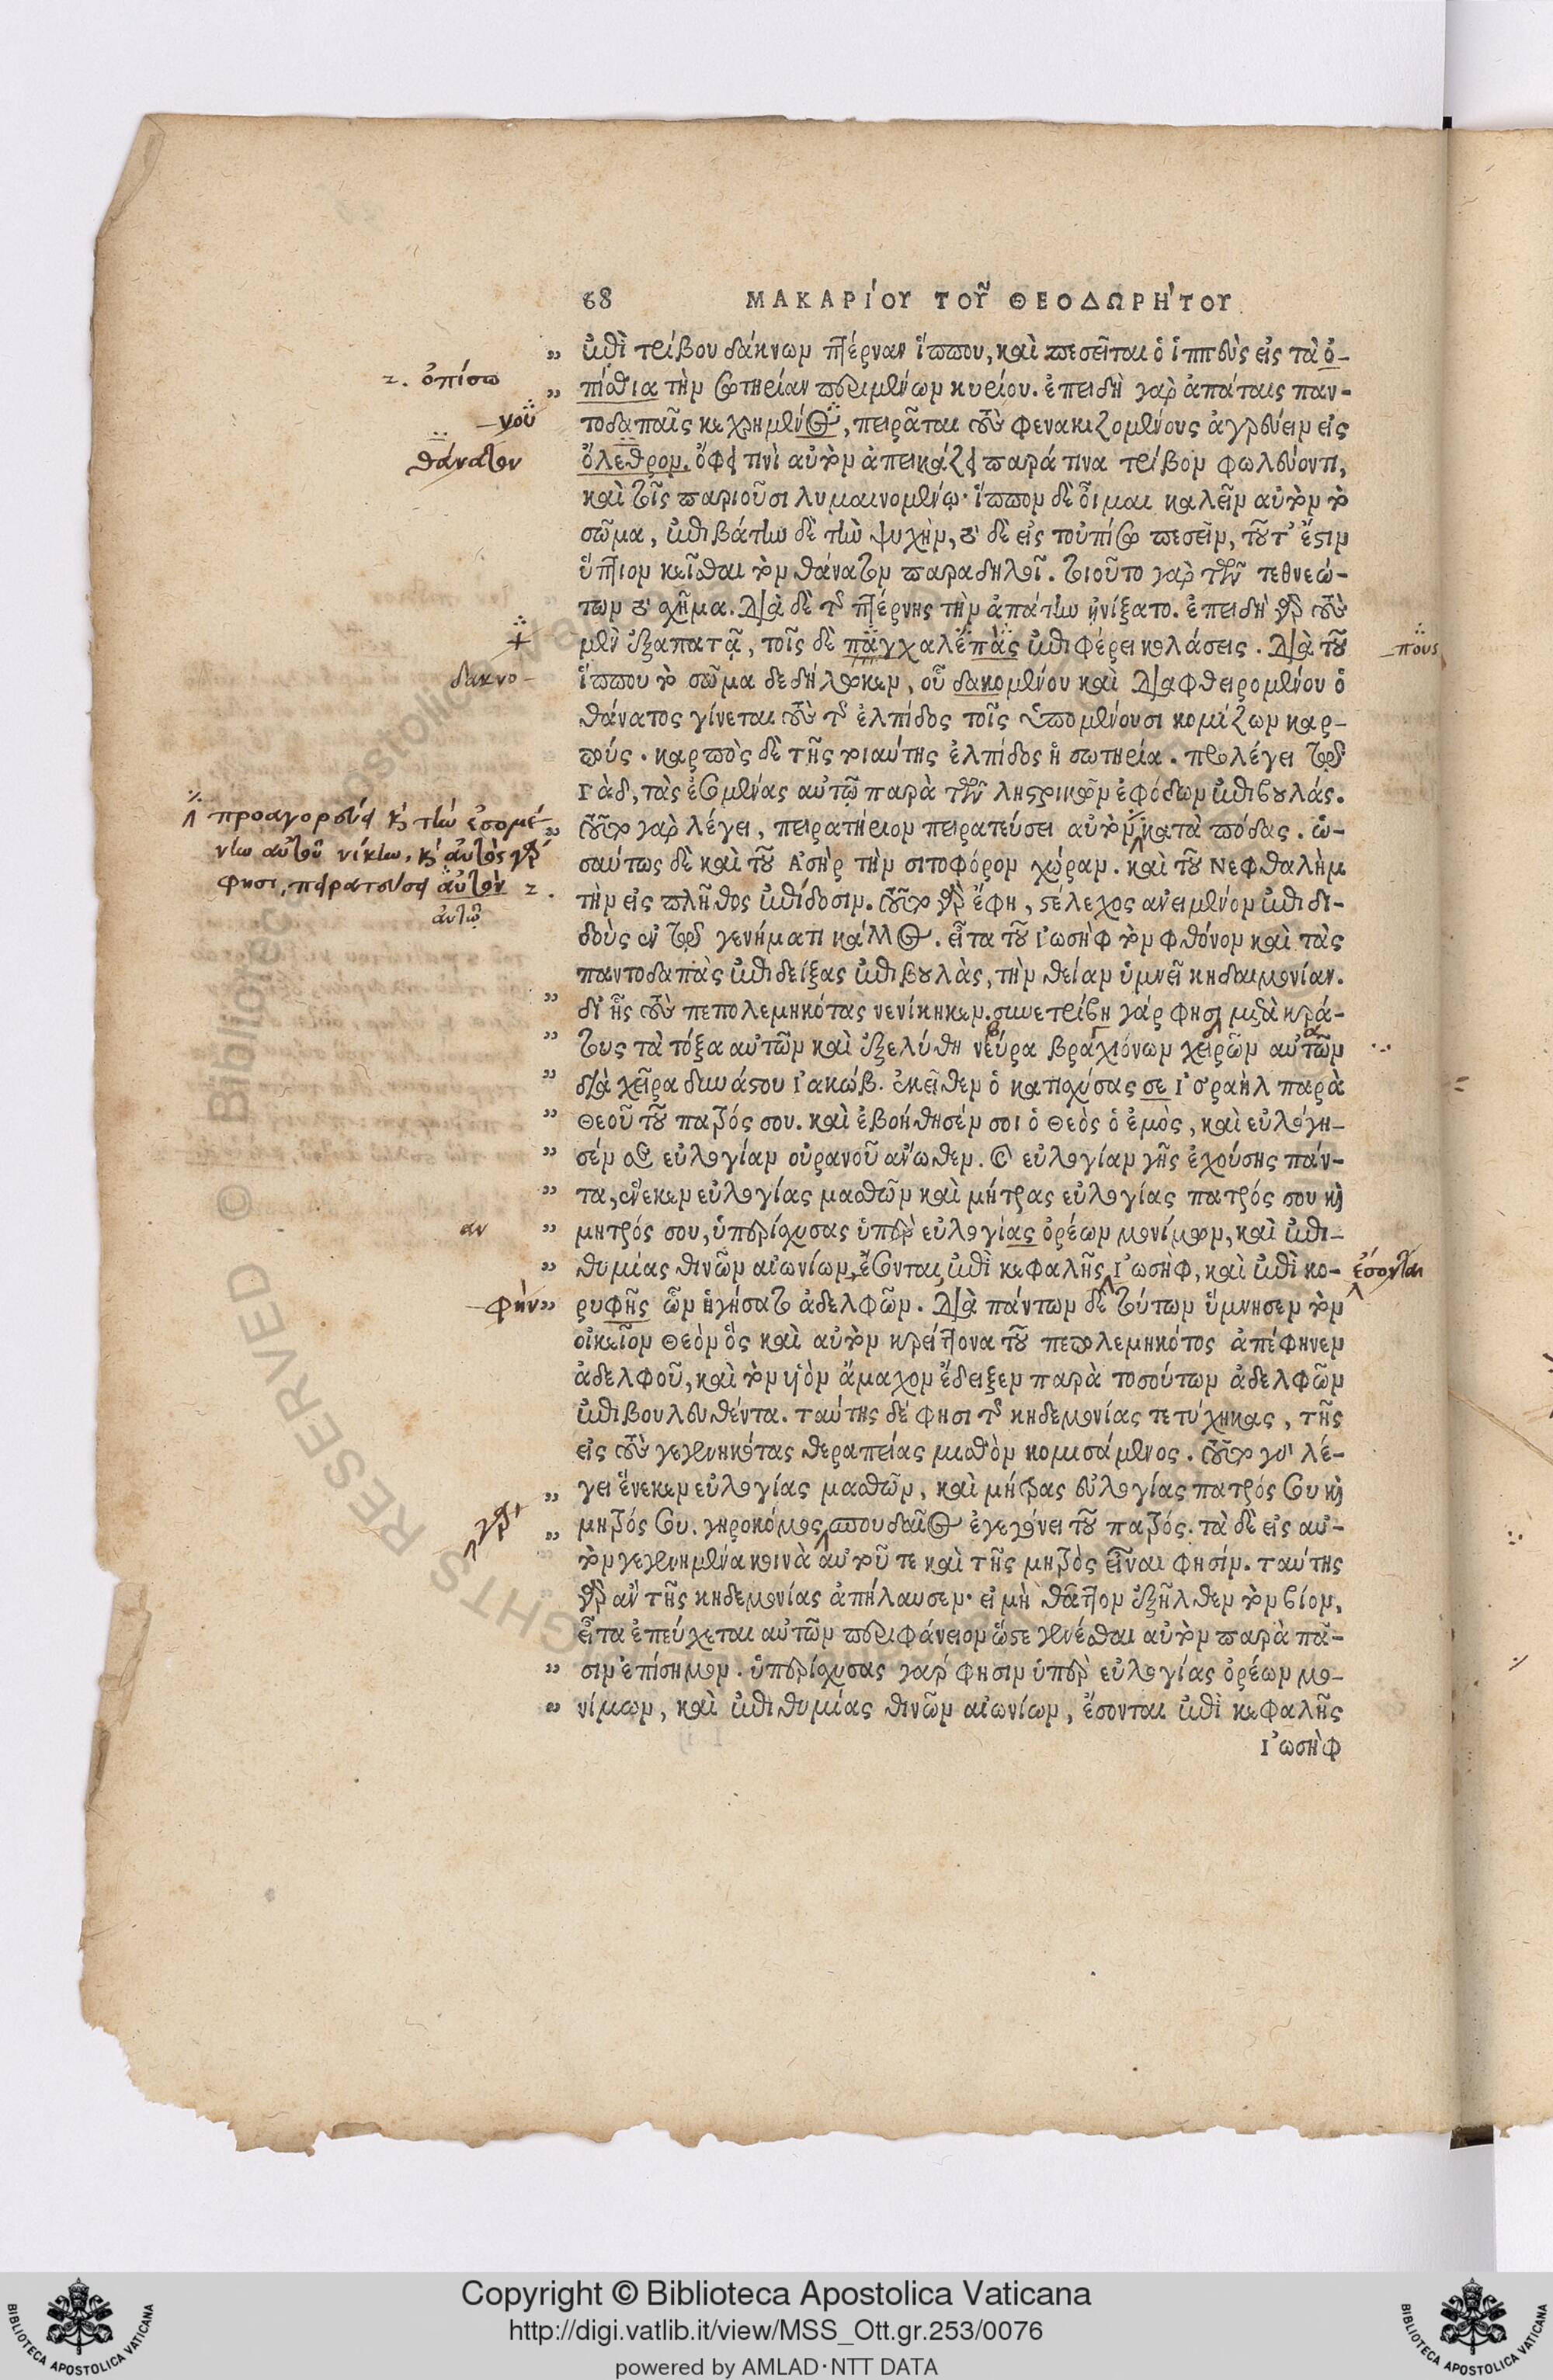 68 ΜΑΚΑΡΊΟΥ ΤΟΥ͂ ΘΕΟΔΩΡΉΤΟΥ
„ ἐπὶ τρίβου δάκνων πτέρναν ἵππου, καὶ πεσεῖται ὁ ἱππεὺς εἰς τὰ ὀ-
2. ὀπίσω
„ πίσθια τὴν σωτηρίαν περιμένων κυρίου. ἐπειδὴ γὰρ ἀπάταις παν-
–νου
τοδαπαῖς κεχρημένος, πειρᾶται τοὺς φενακιζομένους ἀγρεύειν εἰς
θάνατον
ὄλεθρον. ὄφει τινὶ αὐτὸν ἀπεικάζει παρά τινα τρίβον φωλεύοντι,
καὶ τοῖς παριοῦσι λυμαινομένῳ· ἵππον δὲ οἶμαι καλεῖν αὐτὸν τὸ
σῶμα, ἐπιβάτην δὲ τὴν ψυχὴν, τὸ δὲ εἰς τοὐπίσω πεσεῖν, τοῦτ' ἔστιν
ὕπτιον κεῖσθαι τὸν θάνατον παραδηλοῖ. τοιοῦτο γὰρ τῶν τεθνεώ-
των τὸ σχῆμα. διὰ δὲ τῆς πτέρνης τὴν ἀπάτην ᾐνίξατο. ἐπειδὴ γὰρ τοὺς
+
μὲν ἐξαπατᾷ, τοῖς δὲ παγχαλέπὰς ἐπιφέρει κολάσεις. διὰ τοῦ
–πους
δακνο–
ἵππου τὸ σῶμα δεδήλωκεν, οὗ δακομένου καὶ διαφθειρομένου ὁ
θάνατος γίνεται τοὺς τῆς ἐλπίδος τοῖς ὑπομένουσι κομίζων καρ-
πούς. καρπὸς δὲ τῆς τοιαύτης ἐλπίδος ἡ σωτηρία. προλέγει τῷ
Γὰδ, τὰς ἐσομένας αὐτῷ παρὰ τῶν λῃστρικῶν ἐφόδων ἐπιβουλάς.
προαγορεύει καὶ τὴν ἐσομέ-
„ οὕτω γὰρ λέγει, πειρατήριον πειρατεύσει αὐτὸν κατὰ πόδας. ὡ-
νην αὐτοῦ νίκην, καὶ αὐτὸς γάρ
σαύτως δὲ καὶ τοῦ Ἀσὴρ τὴν σιτοφόρον χώραν. καὶ τοῦ Νεφθαλὴμ
φησι, πειρατεύσει αὐτὸν 2.
αὐτῷ
τὴν εἰς πλῆθος ἐπίδοσιν. οὕτω γὰρ ἔφη, στέλεχος ἀνειμένον ἐπιδι-
δοὺς ἐν τῷ γενήματι κάλλος. εἶτα τοῦ Ἰωσὴφ τὸν φθόνον καὶ τὰς
παντοδαπὰς ἐπιδείξας ἐπιβουλὰς, τὴν θείαν ὑμνεῖ κηδαιμονίαν.
„ δι' ἧς τοὺς πεπολεμηκότας νενίκηκεν. συνετρίβη γάρ φησι μετὰ κρά-
„ τους τὰ τόξα αὐτῶν καὶ ἐξελύθη νεύρα βραχιόνων χειρῶν αὐτῶν
„ διὰ χεῖρα δυνάστου Ἰακώβ. ἐκεῖθεν ὁ κατισχύσας σε Ἰσραὴλ παρὰ
„ Θεοῦ τοῦ πατρός σου. καὶ ἐβοήθησέν σοι ὁ Θεὸς ὁ ἐμὸς, καὶ εὐλόγη-
„ σέν σε εὐλογίαν οὐρανοῦ ἄνωθεν. καὶ εὐλογίαν γῆς ἐχούσης πάν-
„ τα, ἕνεκεν εὐλογίας μασθῶν καὶ μήτρας εὐλογίας πατρός σου καὶ
αν
„ μητρός σου, ὑπερίσχυσας ὑπὲρ εὐλογίας ὀρέων μονίμων, καὶ ἐπι-
„ θυμίας θινῶν αἰωνίων, ἔσονται ἐπὶ κεφαλῆς Ἰωσὴφ, καὶ ἐπὶ κο-
ἐσονται
–φὴν
„ ρυφῆς ὧν ἡγήσατο ἀδελφῶν. διὰ πάντων δὲ τούτων ὕμνησεν τὸν
οἰκεῖον Θεὸν ὃς καὶ αὐτὸν κρείττονα τοῦ πεπολεμηκότος ἀπέφηνεν
ἀδελφοῦ, καὶ τὸν υἱὸν ἄμαχον ἔδειξεν παρὰ τοσούτων ἀδελφῶν
ἐπιβουλευθέντα. ταύτης δέ φησι τῆς κηδεμονίας τετύχηκας, τῆς
εἰς τοὺς γεγεννηκότας θεραπείας μισθὸν κομισάμενος. οὕτω γὰρ λέ-
„ γει ἕνεκεν εὐλογίας μασθῶν, καὶ μήτρας εὐλογίας πατρός σου καὶ
γὰρ
„ μητρός σου. γηροκόμος σπουδαῖος ἐγεγόνει τοῦ πατρός. τὰ δὲ εἰς αὐ-
τὸν γεγενημένα κοινὰ αὐτοῦ τε καὶ τῆς μητρὸς εἶναι φησίν. ταύτης
γὰρ ἂν τῆς κηδεμονίας ἀπήλαυσεν· εἰ μὴ θᾶττον ἐξῆλθεν τὸν βίον,
εἶτα ἐπεύχεται αὐτῶν περιφάνειον ὥστε γενέσθαι αὐτὸν παρὰ πᾶ-
„ σιν ἐπίσημον. ὑπερίσχυσας γάρ φησιν ὑπὲρ εὐλογίας ὀρέων μο-
„ νίμων, καὶ ἐπιθυμίας θινῶν αἰωνίων, ἔσονται ἐπὶ κεφαλῆς
Ἰωσὴφ
© Biblioteca Apostolica Vaticana
RIGHTS RESERVED
Copyright © Biblioteca Apostolica Vaticana
http://digi.vatlib.it/view/MSS_Ott.gr.253/0076
powered by AMLAD·NTT DATA
BIBLIOTECA APOSTOLICA VATICANA
BIBLIOTECA APOSTOLICA VATICANA